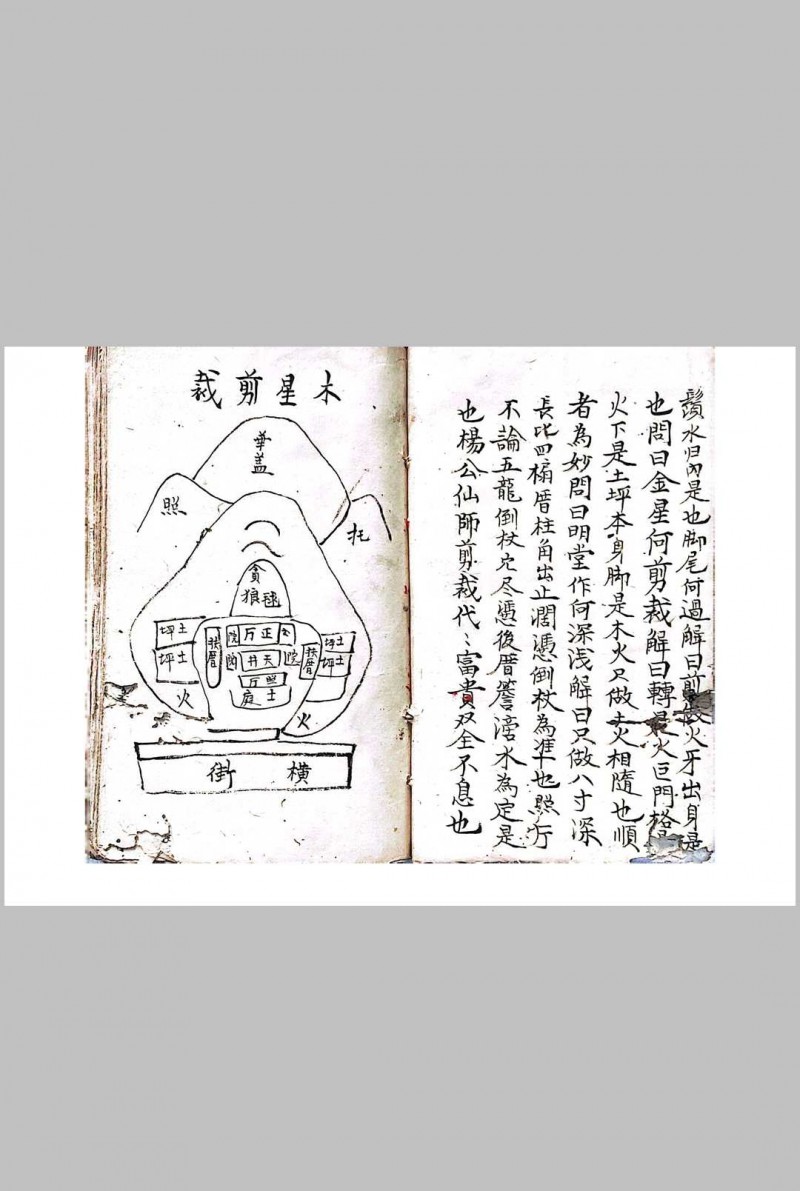 鬚水归內是也脚尾何過解曰剪火牙出身是
也問曰金星何剪裁解曰轉是火巨門格
火下是土坪本身脚是木火只做土火相隨也順
者為妙問曰明堂作何深浅解曰只做八寸深
長比四槅厝柱角出止濶憑倒杖為準也照厅
不論五龍倒杖穴尽憑後厝簷滴水為定是
也楊公仙師剪裁代〻富貴双全不息也
木星剪裁
華盖
照
托
貪狼
毬
正厅
院
天井
院
照厅
土庭
扶厝
扶厝
土坪
土坪
土坪
土坪
火
火
橫街